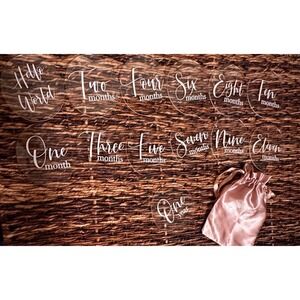 Hello
World
Two
months
Four
months
Six
months
Eight
months
Ten
months
One
month
Three
months
Five
months
Seven
months
Nine
months
Eleven
months
One
year